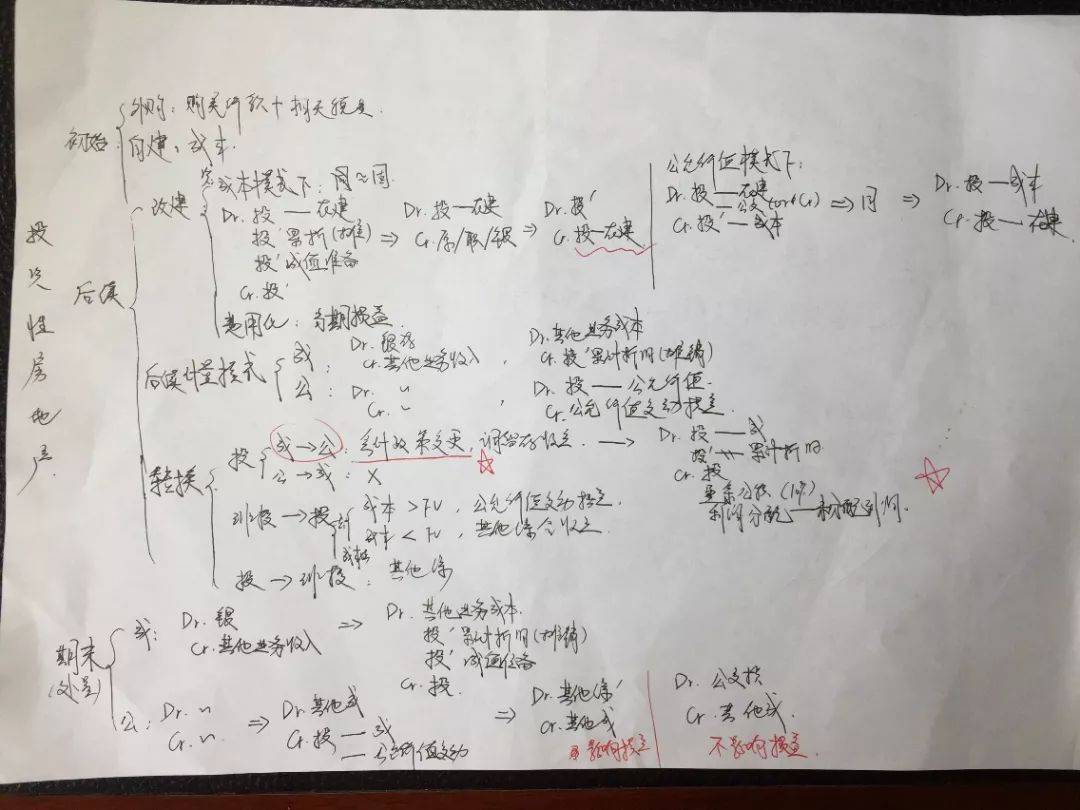 投资性房地产
初始
外购：购买价款＋相关税费
自建：成本
后续
改建
成本模式下：
Dr. 投—在建
投'累折(摊)
投'减值准备
Cr. 投'
⇒ Dr. 投—在建
Cr. 原/职/银
⇒ Dr. 投'
Cr. 投—在建
公允价值模式下：
Dr. 投—在建
Cr. 投'—成本
⇒ 同 ⇒
Dr. 投—成本
Cr. 投—在建
费用化：当期损益
后续计量模式
成：Dr. 银存
Cr. 其他业务收入
Dr. 其他业务成本
Cr. 投'累计折旧(摊销)
公：Dr. 〃
Cr. 〃
Dr. 投—公允价值
Cr. 公允价值变动损益
转换
投
成→公：会计政策变更，调留存收益 →
公→成：×
Dr. 投—成
投'累计折旧
Cr. 投
盈余公积(10%)
利润分配—未分配利润
非投→投
成本＞FV，公允价值变动损益
成本＜FV，其他综合收益
投→非投：其他综
期末
(处置)
成：Dr. 银
Cr. 其他业务收入
⇒ Dr. 其他业务成本
投'累计折旧(摊销)
投'减值准备
Cr. 投
公：Dr. 〃
Cr. 〃
⇒ Dr. 其他成
Cr. 投—成
—公允价值变动
⇒ Dr. 其他综'
Cr. 其他成
影响损益
Dr. 公变损
Cr. 其他成
不影响损益